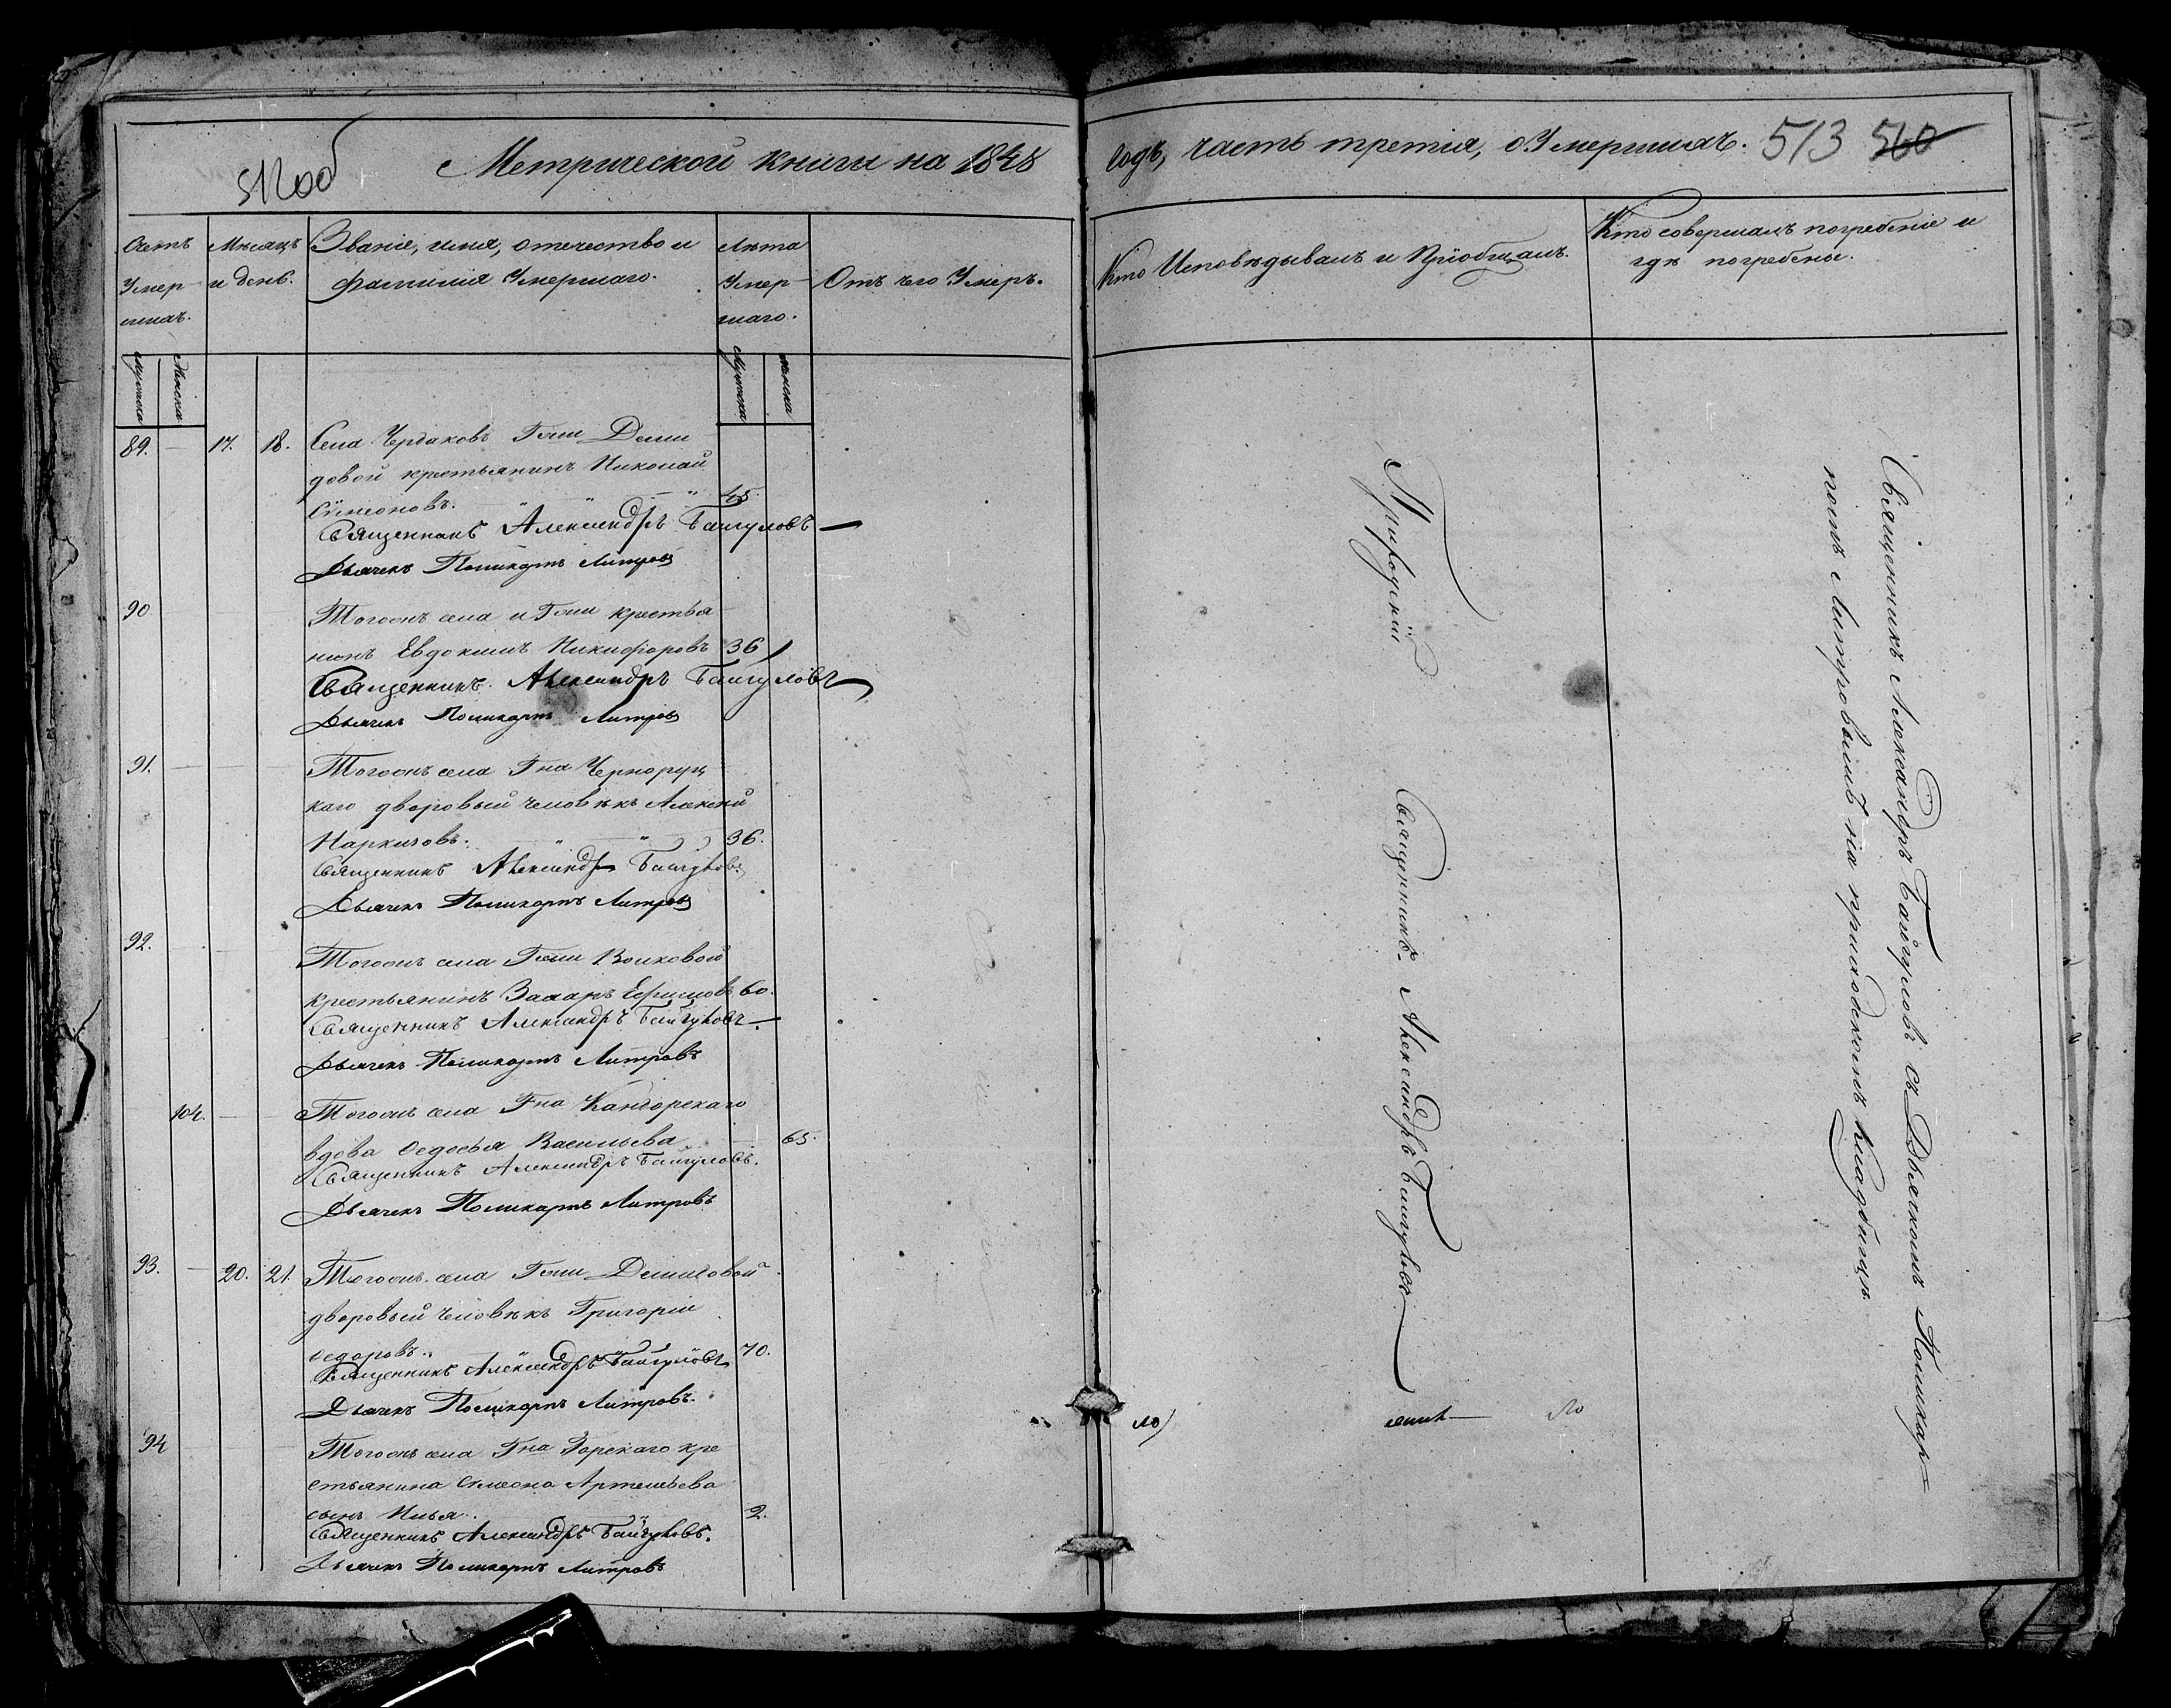 512об
Метрической книги на 1848
Счетъ
Умер-
шихъ.
Мѣсяцъ
и день.
Званіе, имя, отечество и
фамилія Умершаго.
Лѣта
Умер-
шаго.
Отъ чего Умеръ.
Мужеска
Женска
Мужеска
Женска
89. 17. 18. Села Чердаковъ Гжи Деми
довой крестьянинъ Николай
Симеоновъ. 45.
Священникъ Александръ Байгуловъ
Дьячекъ Поликарпъ Литровъ
90 Тогожъ села и Гжи крестья
нинъ Евдокимъ Никифоровъ 36
Священникъ Александръ Байгуловъ
Дьячекъ Поликарпъ Литровъ
91. Тогожъ села Гна Черноруц
каго дворовый человѣкъ Алексѣй
Наркизовъ. 36.
Священникъ Александръ Байгуловъ
Дьячекъ Поликарпъ Литровъ
92. Тогожъ села Гжи Волковой
крестьянинъ Захаръ Ефимовъ 60.
Священникъ Александръ Байгуловъ
Дьячекъ Поликарпъ Литровъ
104. Тогожъ села Гна Кандорскаго
вдова Ѳедосья Васильева 65.
Священникъ Александръ Байгуловъ.
Дьячекъ Поликарпъ Литровъ
93. 20. 21. Тогожъ села Гжи Демидовой
дворовый человѣкъ Григорій
Ѳедоровъ. 70.
Священникъ Александръ Байгуловъ
Дьячекъ Поликарпъ Литровъ.
94 Тогожъ села Гна кре
стьянина Симеона Артемьева
сынъ Илья. 2.
Священникъ Александръ Байгуловъ.
Дьячекъ Поликарпъ Литровъ
годъ, часть третія, о Умершихъ. 513 560
Кто Исповѣдывалъ и Пріобщалъ.
Кто совершалъ погребеніе и
гдѣ погребены.
Приходскій Священникъ Александръ Байгуловъ
Священникъ Александръ Байгуловъ съ Дьячкомъ Поликар=
помъ Литровымъ на приходскомъ кладбищѣ.